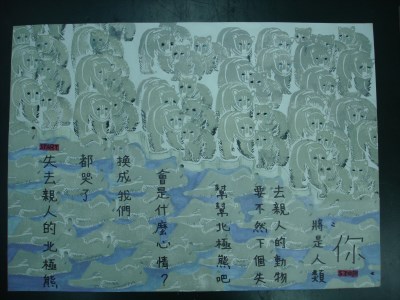 失去親人的北極熊
都哭了
換成我們
會是什麼心情？
幫幫北極熊吧
要不然下個失
去親人的動物
將是人類
你